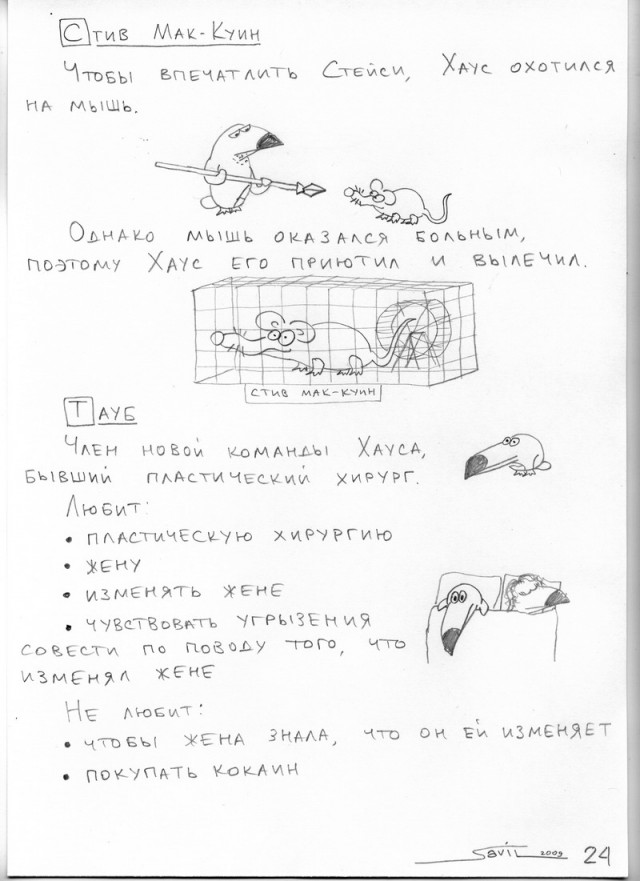 Стив Мак-Куин
Чтобы впечатлить Стейси, Хаус охотился
на мышь.
Однако мышь оказался больным,
поэтому Хаус его приютил и вылечил.
стив мак-куин
Тауб
Член новой команды Хауса,
бывший пластический хирург.
Любит:
• пластическую хирургию
• жену
• изменять жене
• чувствовать угрызения
совести по поводу того, что
изменял жене
Не любит:
• чтобы жена знала, что он ей изменяет
• покупать кокаин
2009 24